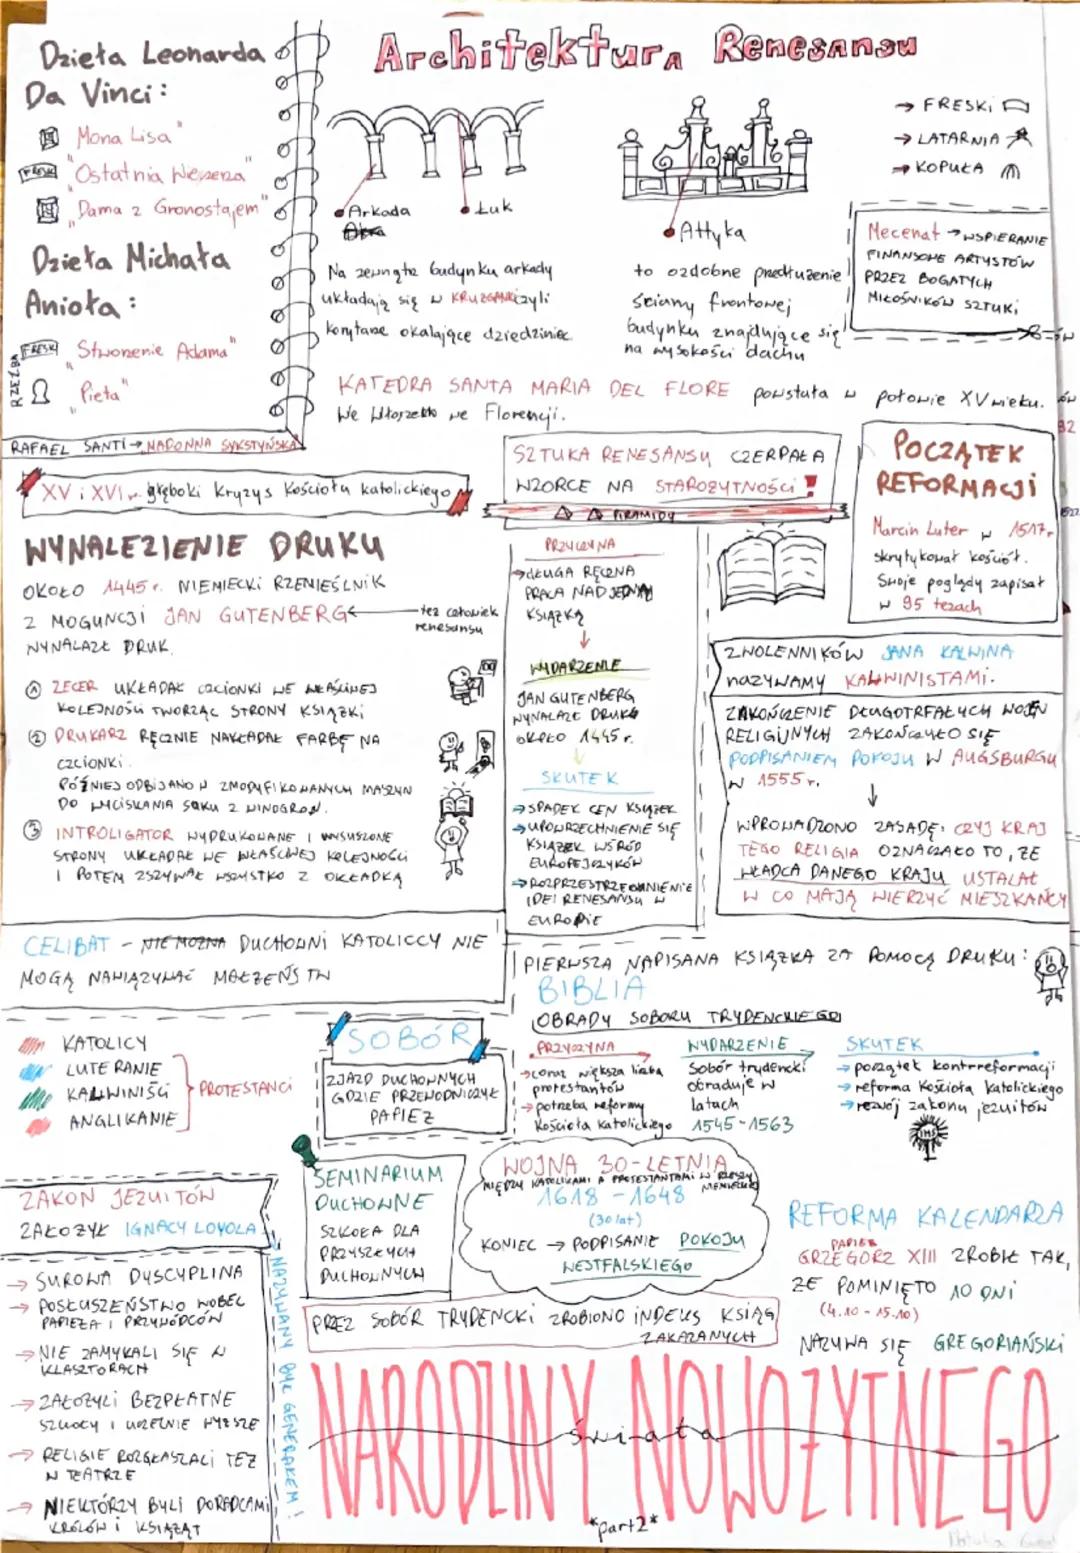 Dzieła Leonarda
Da Vinci:
"Mona Lisa"
FRESK "Ostatnia Wieczerza"
"Dama z Gronostajem"
Dzieła Michała
Anioła:
FRESK "Stworzenie Adama"
RZEŹBA "Pieta"
RAFAEL SANTI → MADONNA SYKSTYŃSKA
Architektura Renesansu
Arkada
Łuk
Na zewnątrz budynku arkady
układają się w KRUŻGANKI czyli
korytarze okalające dziedziniec
Attyka
to ozdobne przedłużenie
ściany frontowej
budynku znajdujące się
na wysokości dachu
→ FRESKI
→ LATARNIA
→ KOPUŁA
Mecenat → WSPIERANIE
FINANSOWE ARTYSTÓW
PRZEZ BOGATYCH
MIŁOŚNIKÓW SZTUKI
KATEDRA SANTA MARIA DEL FLORE powstała w połowie XV wieku.
We Włoszech we Florencji.
XV i XVI w. głęboki kryzys Kościoła katolickiego
SZTUKA RENESANSU CZERPAŁA
WZORCE NA STAROŻYTNOŚCI!
PIRAMIDY
POCZĄTEK
REFORMACJI
Marcin Luter w 1517r.
skrytykował kościół.
Swoje poglądy zapisał
w 95 tezach
WYNALEZIENIE DRUKU
OKOŁO 1445r. NIEMIECKI RZEMIEŚLNIK
Z MOGUNCJI JAN GUTENBERG ← też człowiek
renesansu
WYNALAZŁ DRUK.
① ZECER UKŁADAŁ CZCIONKI WE WŁAŚCIWEJ
KOLEJNOŚCI TWORZĄC STRONY KSIĄŻKI
② DRUKARZ RĘCZNIE NAKŁADAŁ FARBĘ NA
CZCIONKI.
PÓŹNIEJ ODBIJANO W ZMODYFIKOWANYCH MASZYN
DO WYCISKANIA SOKU Z WINOGRON.
③ INTROLIGATOR WYDRUKOWANE I WYSUSZONE
STRONY UKŁADAŁ WE WŁAŚCIWEJ KOLEJNOŚCI
I POTEM ZSZYWAŁ WSZYSTKO Z OKŁADKĄ
PRZYCZYNA
→ DŁUGA RĘCZNA
PRACA NAD JEDNYM
KSIĄŻKĄ
WYDARZENIE
JAN GUTENBERG
WYNALAZŁ DRUK
OKOŁO 1445r.
SKUTEK
→ SPADEK CEN KSIĄŻEK
→ UPOWSZECHNIENIE SIĘ
KSIĄŻEK WŚRÓD
EUROPEJCZYKÓW
→ ROZPRZESTRZEONIENIE
IDEI RENESANSU W
EUROPIE
ZWOLENNIKÓW JANA KALWINA
nazywamy KALWINISTAMI.
ZAKOŃCZENIE DŁUGOTRFAŁYCH WOJEN
RELIGIJNYCH ZAKOŃCZYŁO SIĘ
PODPISANIEM POKOJU W AUGSBURGU
W 1555r.
WPROWADZONO ZASADĘ: CZYJ KRAJ
TEGO RELIGIA OZNACZAŁO TO, ŻE
WŁADCA DANEGO KRAJU USTALAŁ
W CO MAJĄ WIERZYĆ MIESZKAŃCY
CELIBAT - NIE MOŻNA DUCHOWNI KATOLICCY NIE
MOGĄ NAWIĄZYWAĆ MAŁŻEŃSTW
PIERWSZA NAPISANA KSIĄŻKA ZA POMOCĄ DRUKU:
BIBLIA
KATOLICY
LUTERANIE
KALWINIŚCI
ANGLIKANIE
PROTESTANCI
SOBÓR
ZJAZD DUCHOWNYCH
GDZIE PRZEWODNICZYŁ
PAPIEŻ
OBRADY SOBORU TRYDENCKIEGO
PRZYCZYNA
→ coraz większa liczba
protestantów
→ potrzeba reformy
Kościoła katolickiego
WYDARZENIE
Sobór trydencki
obraduje w
latach
1545-1563
SKUTEK
→ początek kontrreformacji
→ reforma Kościoła Katolickiego
→ rozwój zakonu jezuitów
IHS
ZAKON JEZUITÓW
ZAŁOŻYŁ IGNACY LOYOLA
→ NAZYWANY BYŁ GENERAŁEM!
→ SUROWA DYSCYPLINA
→ POSŁUSZEŃSTWO WOBEC
PAPIEŻA I PRZYWÓDCÓW
→ NIE ZAMYKALI SIĘ W
KLASZTORACH
→ ZAŁOŻYLI BEZPŁATNE
SZKOŁY I UCZELNIE WYŻSZE
→ RELIGIE ROZGŁASZALI TEŻ
W TEATRZE
→ NIEKTÓRZY BYLI DORADCAMI
KRÓLÓW I KSIĄŻĄT
SEMINARIUM
DUCHOWNE
SZKOŁA DLA
PRZYSZŁYCH
DUCHOWNYCH
WOJNA 30-LETNIA
MIĘDZY KATOLIKAMI A PROTESTANTAMI W RZESZY
NIEMIECKIEJ
1618 - 1648
(30 lat)
KONIEC → PODPISANIE POKOJU
WESTFALSKIEGO
REFORMA KALENDARZA
PAPIEŻ
GRZEGORZ XIII ZROBIŁ TAK,
ŻE POMINIĘTO 10 DNI
(4.10 - 15.10)
NAZYWA SIĘ GREGORIAŃSKI
PRZEZ SOBÓR TRYDENCKI ZROBIONO INDEKS KSIĄG
ZAKAZANYCH
NARODZINY NOWOŻYTNEGO
świata
*part2*